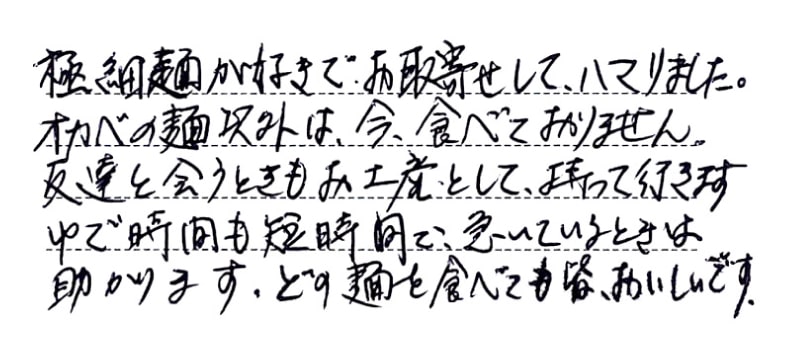 極細麺が好きで、お取寄せして、ハマりました。
オカベの麺以外は、今、食べておりません。
友達と会うときもお土産として、持って行きます
ゆで時間も短時間で、急いでいるときは
助かります。どの麺を食べても皆、おいしいです。